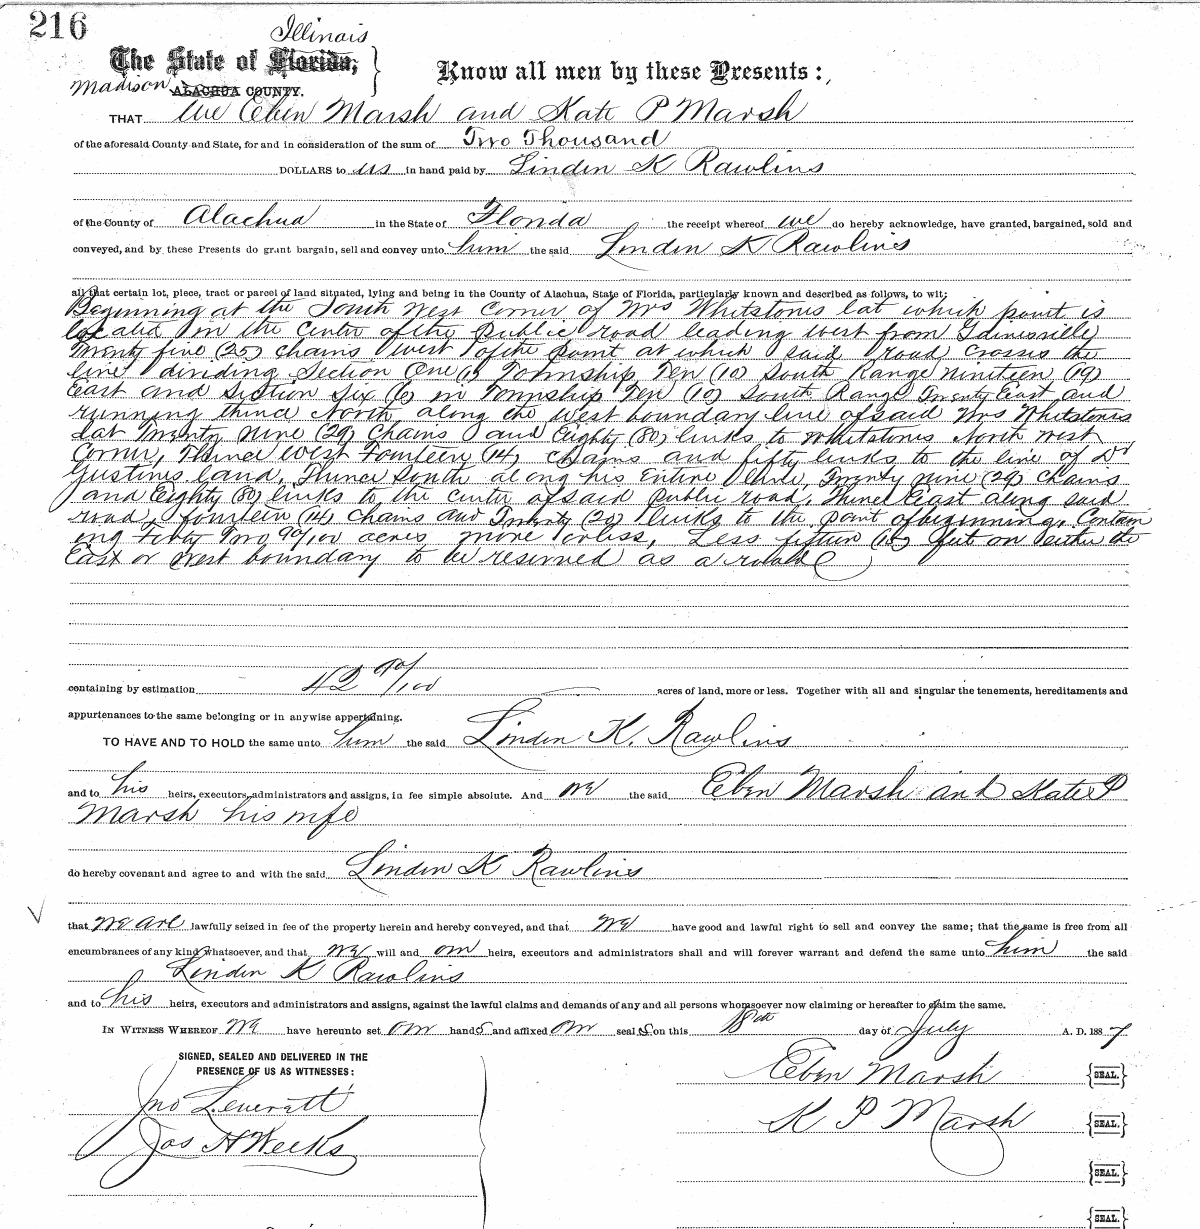 216
Illinois
The State of Florida,
Madison ALACHUA COUNTY.
Know all men by these Presents:
THAT We Eben Marsh and Kate P Marsh
of the aforesaid County and State, for and in consideration of the sum of Two Thousand
DOLLARS to us in hand paid by Linden K Rawlins
of the County of Alachua in the State of Florida the receipt whereof we do hereby acknowledge, have granted, bargained, sold and
conveyed, and by these Presents do grant bargain, sell and convey unto him the said Linden K Rawlins
all that certain lot, piece, tract or parcel of land situated, lying and being in the County of Alachua, State of Florida, particularly known and described as follows, to wit:
Beginning at the South West Corner of Mrs Whitstones lot which point is
located in the center of the public road leading west from Gainesville
Twenty five (25) chains West of the point at which said road crosses the
line dividing Section One (1) Township Ten (10) South Range nineteen (19)
East and Section Six (6) in Township Ten (10) South Range Twenty East and
running thence North along the West boundary line of said Mrs Whitstones
lot Twenty Nine (29) Chains and Eighty (80) links to Whitstones North West
Corner, Thence West Fourteen (14) chains and fifty links to the line of Dr
Gustines land, Thence South along his Entire line, Twenty nine (29) Chains
and Eighty (80) links to the center of said public road, Thence East along said
road, fourteen (14) chains and Twenty (20) links to the point of beginning, Contain
ing Forty Two 90/100 acres more or less, Less fifteen (15) feet on either the
East or West boundary to be reserved as a road
containing by estimation 42 90/100 acres of land, more or less. Together with all and singular the tenements, hereditaments and
appurtenances to the same belonging or in anywise appertaining.
TO HAVE AND TO HOLD the same unto him the said Linden K. Rawlins
and to his heirs, executors, administrators and assigns, in fee simple absolute. And we the said Eben Marsh and Kate P
Marsh his wife
do hereby covenant and agree to and with the said Linden K Rawlins
that we are lawfully seized in fee of the property herein and hereby conveyed, and that we have good and lawful right to sell and convey the same; that the same is free from all
encumbrances of any kind whatsoever, and that we will and our heirs, executors and administrators shall and will forever warrant and defend the same unto him the said
Linden K Rawlins
and to his heirs, executors and administrators and assigns, against the lawful claims and demands of any and all persons whomsoever now claiming or hereafter to claim the same.
IN WITNESS WHEREOF we have hereunto set our hands and affixed our seals on this 18th day of July A. D. 1887
SIGNED, SEALED AND DELIVERED IN THE
PRESENCE OF US AS WITNESSES:
Eben Marsh SEAL.
Jno Leverett
K P Marsh SEAL.
Jos H Weeks
SEAL.
SEAL.